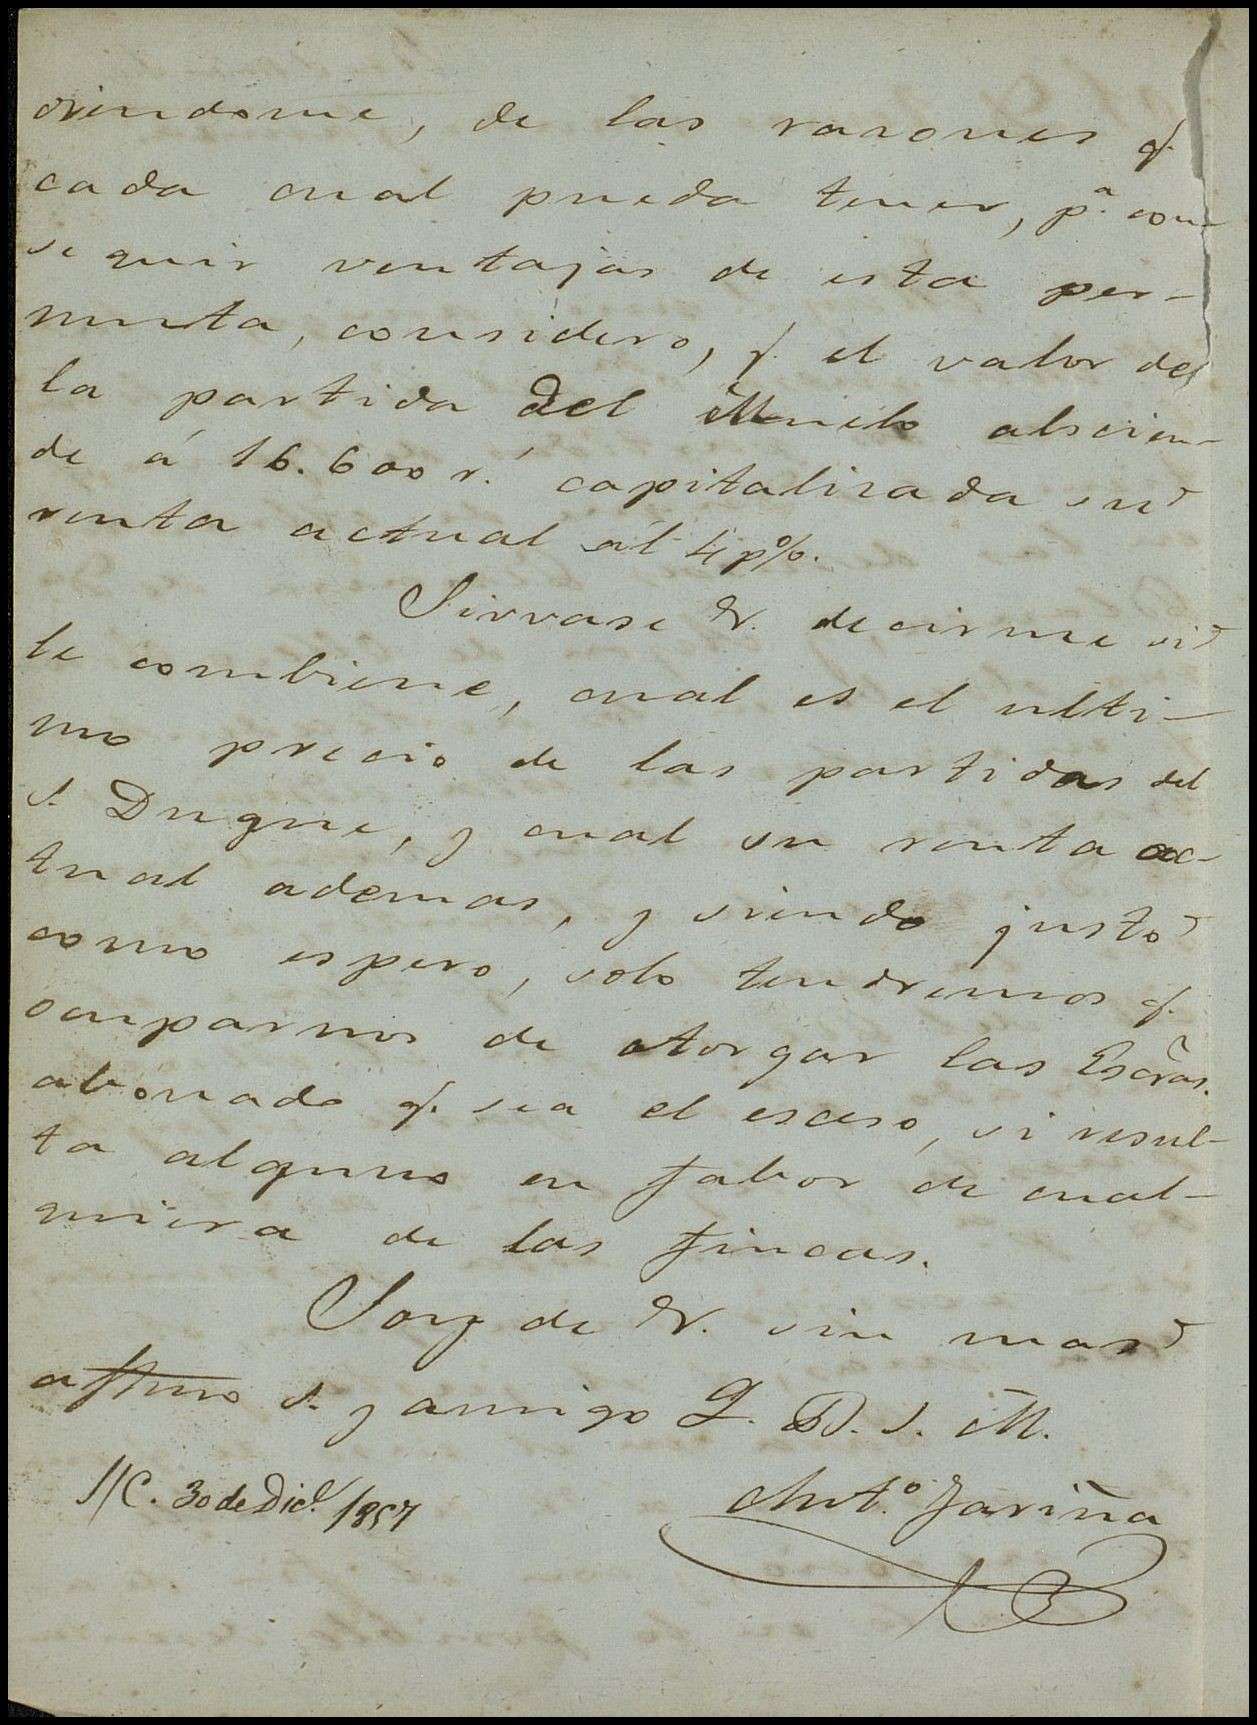 viendome, de las rasones q.
cada cual pueda tener, pª. con-
seguir ventajas de esta per-
muta, considero, q. el valor de
la partida del Muelo alscien-
de á 16.600 r.ˢ capitalizada su
renta actual al 4 p%.
Sirvase V. decirme si
le combiene, cual es el ulti-
mo precio de las partidas del
S. Duque, y cual su renta ac-
tual ademas, y siendo justo
como espero, solo tendremos q.
ocuparnos de otorgar las Escras.
abonado q. sea el esceso, si resul-
ta alguno en fabor de cual-
quiera de las fincas.
Soy de V. sin mas
afftmo S. y amigo Q. B. S. M.
S/C. 30 de Dice. /1857
Antº. Fariña